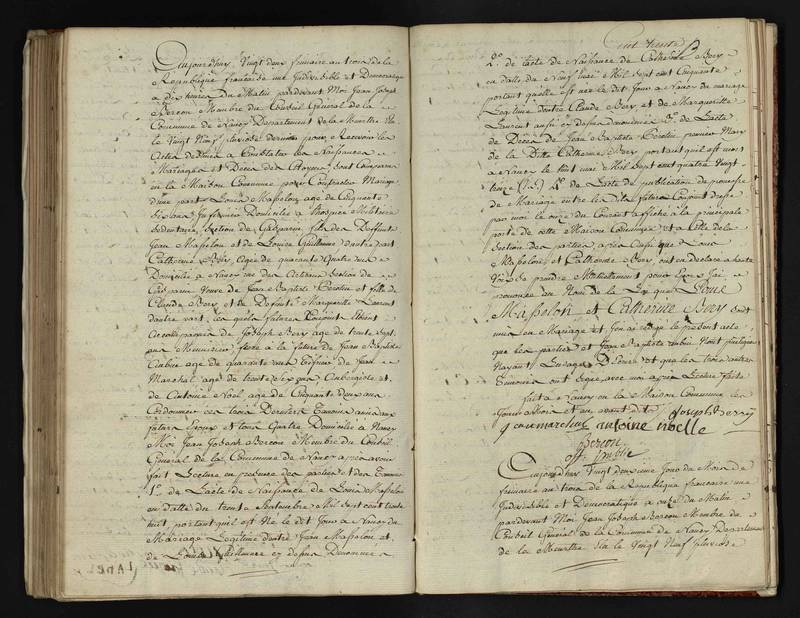 Aujourdhuy Vingt deux frimaire an trois de la
Republique francaise une Indivisible et Democratique
a dix heures Du Matin pardevant Moi Jean Joseph
Membre du Conseil General de la
Commune de Nancy Departement de la Meurthe
le Vingt Neuf pluviose dernier pour Recevoir les
Actes destinés a Constater les Naissances
Mariages et Decès des Citoyens, sont Comparus
en la Maison Commune pour Contracter Mariage
d'une part Louis Masselon, age de Cinquante
Six ans Infirmier Domicilié a l'hospice Militaire
Section de fils des Deffunts
Jean Masselon et de Louise Guillemin d'autre part
Catherine Bery agée de quarante quatre ans
Domicilié a Nancy rue des Section de
Veuve de Jean Baptiste et fille de
Claude Bery et De Defunte Marguerite Laurent
d'autre part, lesquels futurs Conjoints Etant
accompagnés de Joseph Bery age de trente Sept
ans Menuisier frere à la future de Jean Baptiste
age de quarante ans de Jean
Marechal age de trente six ans Aubergiste et
de Antoine Noel age de Cinquante deux ans
Cordonnier ces trois Derniers Temoins amis aux
futurs Epoux et tous Quatre Domiciliés a Nancy
Moi Jean Joseph Membre du Conseil
General de la Commune de Nancy apres avoir
fait Lecture en presence des parties et des Temoins
1°. de L'acte de Naissance de Louis Masselon
en datte du trente Septembre Mil Sept cent trente
huit, portant quil est Né le dit Jour a Nancy du
Mariage Legitime d'entre Jean Masselon et
de Louise Guillemin cy dessus Denommés
Cent trente
2°. de l'acte de Naissance de Catherine Bery
en datte du Neuf mai Mil Sept cent Cinquante
portant quelle est née le dit Jour a Nancy du mariage
Legitime d'entre Claude Bery et de Marguerite
Laurent aussi cy dessus denommés 3°. de L'acte
de Decès de Jean Baptiste premier Mary
de la Ditte Catherine Bery portant quil est mort
a Nancy le huit mai Mil Sept cent quatre Vingt
4°. de L'acte de publication de promesse
de Mariage entre les dits futurs Conjoints dressé
par moi le onze du Courant affiché a la principale
porte de cette Maison Commune et a Celle de la
Section des parties apres aussi que Louis
Masselon et Catherine Bery, ont eu declaré a haute
Voix se prendre Mutuellement pour Epoux J'ai
prononcé au Nom de la Loy que Louis
Masselon et Catherine Bery sont
unis en Mariage et J'en ai redigé le present acte
que les parties et Jean Baptiste n'ont
Nayant L'usage D'Ecrire et que les trois autres
Temoins ont signé avec moi apres Lecture faite
fait a Nancy en la Maison Commune les
Jour mois et an avant dits Joseph berry
J marechal antoine noelle
off. publie
Aujourdhuy Vingt deuxieme Jour du Mois de
frimaire an trois de la Republique francaise une
Indivisible et Democratique a onze du Matin
pardevant Moi Jean Joseph Membre du
Conseil General de la Commune de Nancy Departement
de la Meurthe le Vingt Neuf pluviose